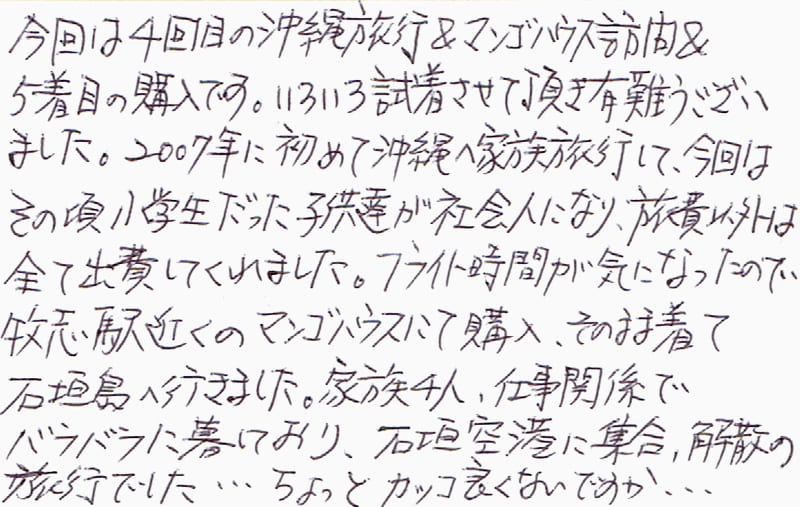 今回は4回目の沖縄旅行&マンゴハウス訪問&
5着目の購入です。いろいろ試着させて頂き有難うござい
ました。2007年に初めて沖縄へ家族旅行して、今回は
その頃小学生だった子供達が社会人になり、旅費以外は
全て出費してくれました。フライト時間が気になったので
牧志駅近くのマンゴハウスにて購入、そのまま着て
石垣島へ行きました。家族4人、仕事関係で
バラバラに暮ており、石垣空港に集合,解散の
旅行でした…ちょっとカッコ良くないですか...